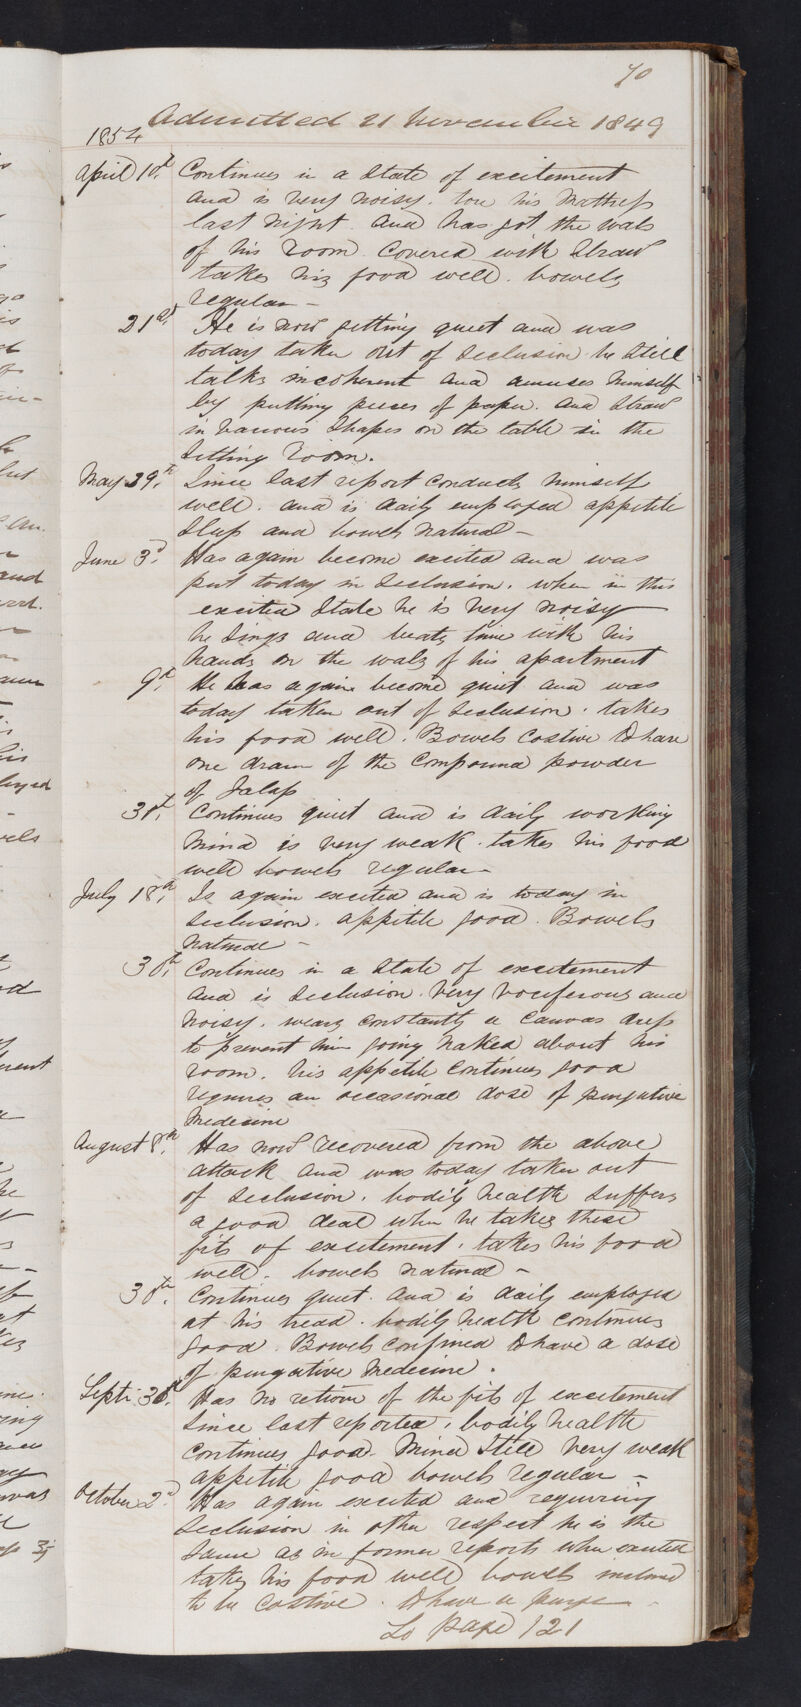 70
Admitted 21 November 1849
1854
April 10th Continues in a state of excitement
and is very noisy. tore his Mattress
last night. and has got the wals
of his room covered with straw
takes his food well. bowels
regular –
21st. He is now getting quiet and was
today taken out of seclusion he still
talks incoherent and amuses himself
by putting pieces of paper. and straw
in various shapes on the table in the
sitting room.
May 29th. Since last report conducts himself
well. and is daily employed appetite
sleep and bowels natural –
June 3d. Has again become excited and was
put today in seclusion. when in this
excited state he is very noisy
he sings and beats time with his
hands on the wals of his apartment
9th. He has again become quiet and was
today taken out of seclusion. takes
his food well. Bowels costive to have
one dram of the compound powder
of Jalap
30th. Continues quiet and is daily working
mind is very weak. takes his food
well bowels regular –
July 18th. Is again excited and is today in
seclusion. appetite good. Bowels
natural –
30th. Continues in a state of excitement
and is seclusion. very vociferous and
noisy. wears constantly a canvas dress
to prevent him going naked about his
room. his appetite continues good
requires an occasional dose of purgative
medecine
August 8th. Has now recovered from the above
attack and was today taken out
of seclusion. bodily health suffers
a good deal when he takes these
fits of excitement. takes his food
well. bowels natural –
30th. Continues quiet. and is daily employed
at his head. bodily health continues
good. Bowels confined to have a dose
of purgative medecine.
Septr 30th. Has no return of the fits of excitement
since last reported. bodily health
continues good. Mind still very weak
appetite good bowels regular –
October 2d. Has again excited and requiring
seclusion in other respect he is the
same as in former reports when excited
takes his food well bowels inclined
to be costive. to have a purge –
To page 121